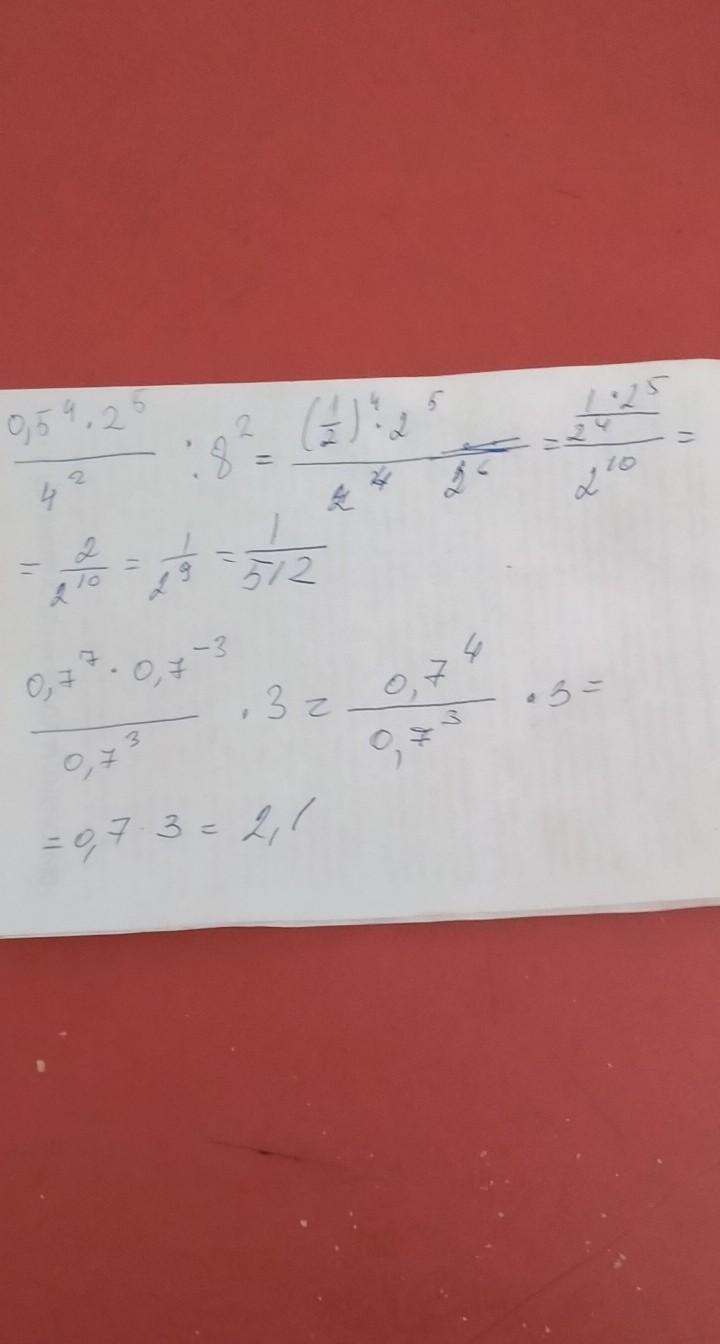 0,5⁴ · 2⁵ / 4² : 8² = (1/2)⁴ · 2⁵ / 2⁴ 2⁶ = (1 · 2⁵ / 2⁴) / 2¹⁰ =
= 2/2¹⁰ = 1/2⁹ = 1/512
0,7⁷ · 0,7⁻³ / 0,7³ · 3 = 0,7⁴ / 0,7³ · 3 =
= 0,7 · 3 = 2,1